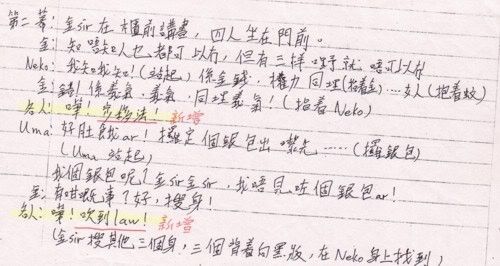 第二幕：金sir在櫃前講書，四人坐在門前。
金：知唔知人乜都可以冇，但有三樣嘢就唔可以冇
Neko：我知我知！(站起) 係金錢，權力同埋(指着金)……女人(抱着蚊)
金：錯！係義氣，義氣，同埋義氣！(指着Neko)
各人：嘩！ 新增
Uma：好肚餓ar！攞定個銀包出嚟先……(攞銀包)
(Uma站起)
我個銀包呢？金sir金sir，我唔見咗個銀包ar！
金：有咁嘅事？好，搜身！
各人：嘩！吹到law！ 新增
(金sir搜其他三個身，三個背着向黑版，在Neko身上找到)